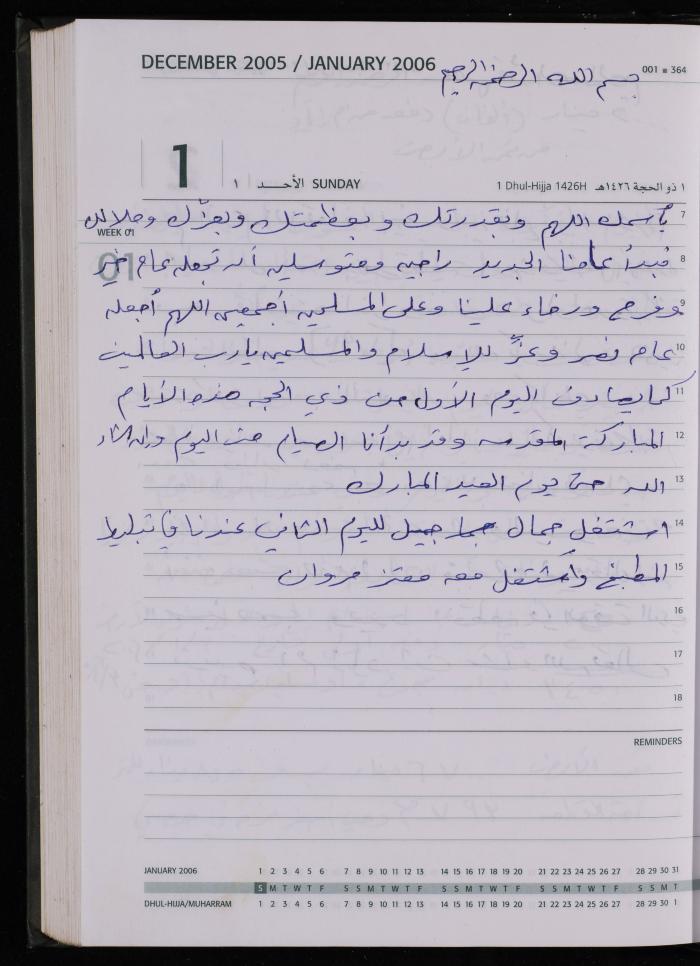 DECEMBER 2005 / JANUARY 2006
بسم الله الرحمن الرحيم
001 ▪ 364
1
١ الأحـــد SUNDAY
1 Dhul-Hijja 1426H ١ ذو الحجة ١٤٢٦هـ
7 بأسمك اللهم وبقدرتك وبعظمتك وبعزّك وجلالك
WEEK 01
01
8 نبدأ عامنا الجديد راجين ومتوسلين أن تجعله عام خير
9 وفرح ورخاء علينا وعلى المسلمين أجمعين اللهم أجعله
10 عام نصر وعزٍّ للإسلام والمسلمين يارب العالمين
11 كما يصادف اليوم الأول من ذي الحجه هذه الأيام
12 المباركة المقدسه وقد بدأنا الصيام من اليوم وان شاء
13 الله حتى يوم العيد المبارك
14 اشتغل جمال جميل لليوم الثاني عندنا في تبليط
15 المطبخ وأشتغل معه معتز مروان
16
17
18
REMINDERS
JANUARY 2006 1 2 3 4 5 6 7 8 9 10 11 12 13 14 15 16 17 18 19 20 21 22 23 24 25 26 27 28 29 30 31
S M T W T F S S M T W T F S S M T W T F S S M T W T F S S M T
DHUL-HIJJA/MUHARRAM 1 2 3 4 5 6 7 8 9 10 11 12 13 14 15 16 17 18 19 20 21 22 23 24 25 26 27 28 29 30 1